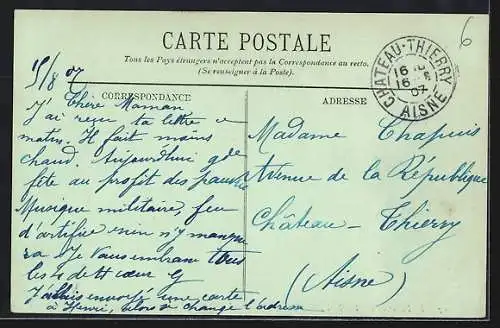 CARTE POSTALE
Tous les Pays étrangers n'acceptent pas la Correspondance au recto.
(Se renseigner à la Poste).
6
CHATEAU-THIERRY
16
16 8
07
AISNE
15/8 07
CORRESPONDANCE
Chère Maman
J'ai reçu ta lettre ce
matin. Il fait moins
chaud. Aujourd'hui gde
fête au profit des pauvres
Musique militaire, feu
d'artifice rien n'y manque
ra Je vous embrasse tous
les 4 de tt cœur G
J'avais envoyé une carte
à Henri, alors de change l'adresse
ADRESSE
Madame Chapuis
Avenue de la République
Château-Thierry
(Aisne)